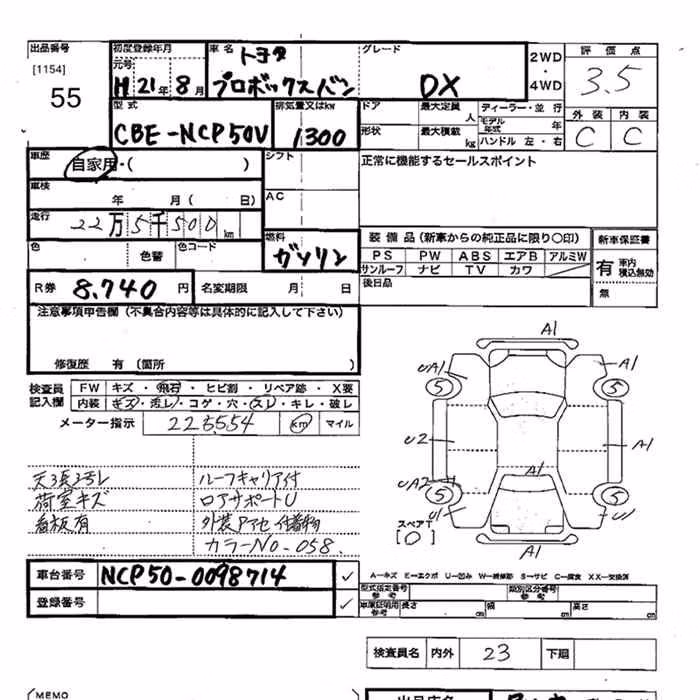 出品番号 初度登録年月 車名 トヨタ グレード 2WD 評価点
[1154] 元号 ・ 3.5
55 H 21年 8月 プロボックスバン DX 4WD
型式 排気量又はkw ドア 最大定員 人 ディーラー・並行 外装 内装
CBE-NCP50V 1300 形状 最大積載 kg モデル年式 年 C C
ハンドル 左・右
車歴 自家用・( ) シフト 正常に機能するセールスポイント
車検 年 月( 日) AC
走行 22万5千500km
色 色替 色コード 燃料 ガソリン 装備品(新車からの純正品に限り○印) 新車保証書
PS PW ABS エアB アルミW 有 車内積込無効
サンルーフ ナビ TV カワ
R券 8.740円 名変期限 月 日 後日品 無
注意事項申告欄(不具合内容等は具体的に記入して下さい)
修復歴 有(箇所 )
検査員記入欄 FW キズ・飛石・ヒビ割・リペア跡・X要
内装 キズ・汚レ・コゲ・穴・スレ・キレ・破レ
メーター指示 225554 km マイル
ルーフキャリア付
荷室キズ ロアサポートU
看板有
カラーNo-058.
A1
UA1 A1
5 5
U2 A1 A1
UA2
5 5
U1 U1
スペアT
[0] A1
車台番号 NCP50-0098714 ✓
登録番号 ✓
A-キズ E-エクボ U-凹み W-補修跡 S-サビ C-腐食 XX-交換済
型式指定番号参考 類別区分番号参考
車庫証明用参考 長さ cm 幅 cm 高さ cm
検査員名 内外 23 下廻
MEMO 出品店名